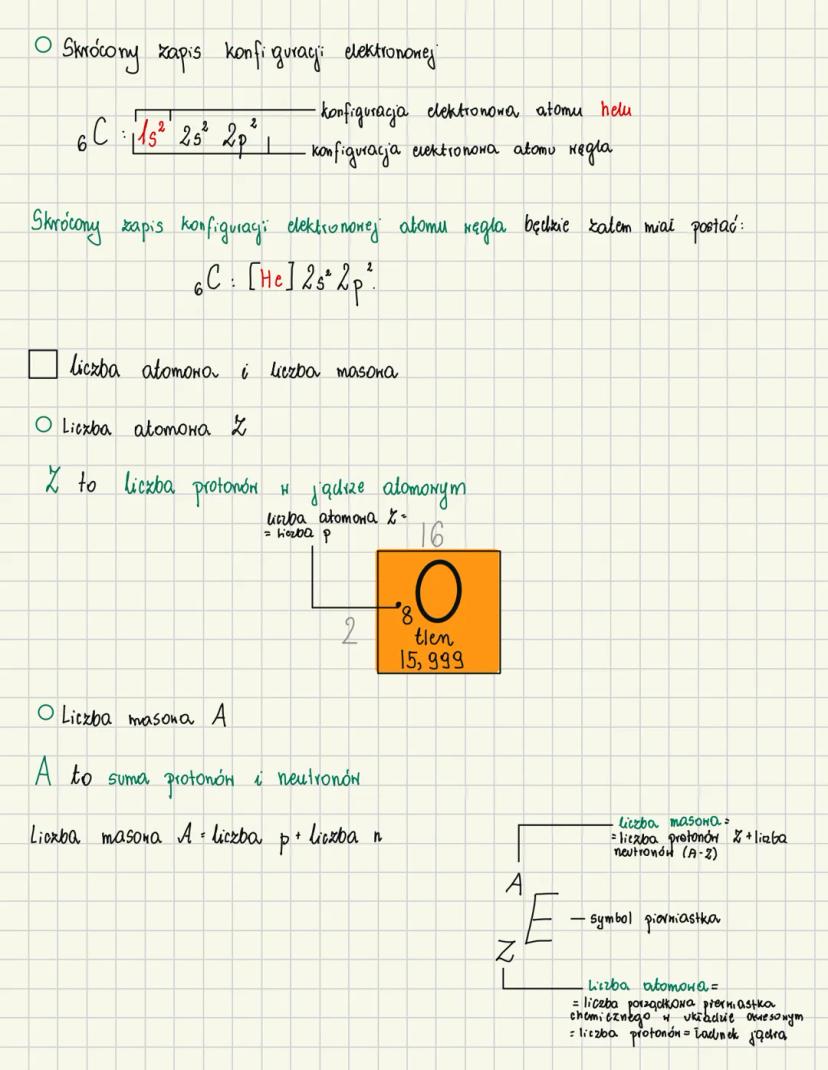 Skrócony zapis konfiguracji elektronowej
konfiguracja elektronowa atomu helu
₆C : 1s² 2s² 2p²
konfiguracja elektronowa atomu węgla
Skrócony zapis konfiguracji elektronowej atomu węgla będzie zatem miał postać:
₆C : [He] 2s² 2p².
liczba atomowa i liczba masowa
Liczba atomowa Z
Z to liczba protonów w jądrze atomowym
liczba atomowa Z =
= liczba p
16
O
8
2
tlen
15,999
Liczba masowa A
A to suma protonów i neutronów
Liczba masowa A = liczba p + liczba n
liczba masowa =
= liczba protonów Z + liczba
neutronów (A-Z)
A
E
— symbol pierwiastka
Z
liczba atomowa =
= liczba porządkowa pierwiastka
chemicznego w układzie okresowym
= liczba protonów = ładunek jądra